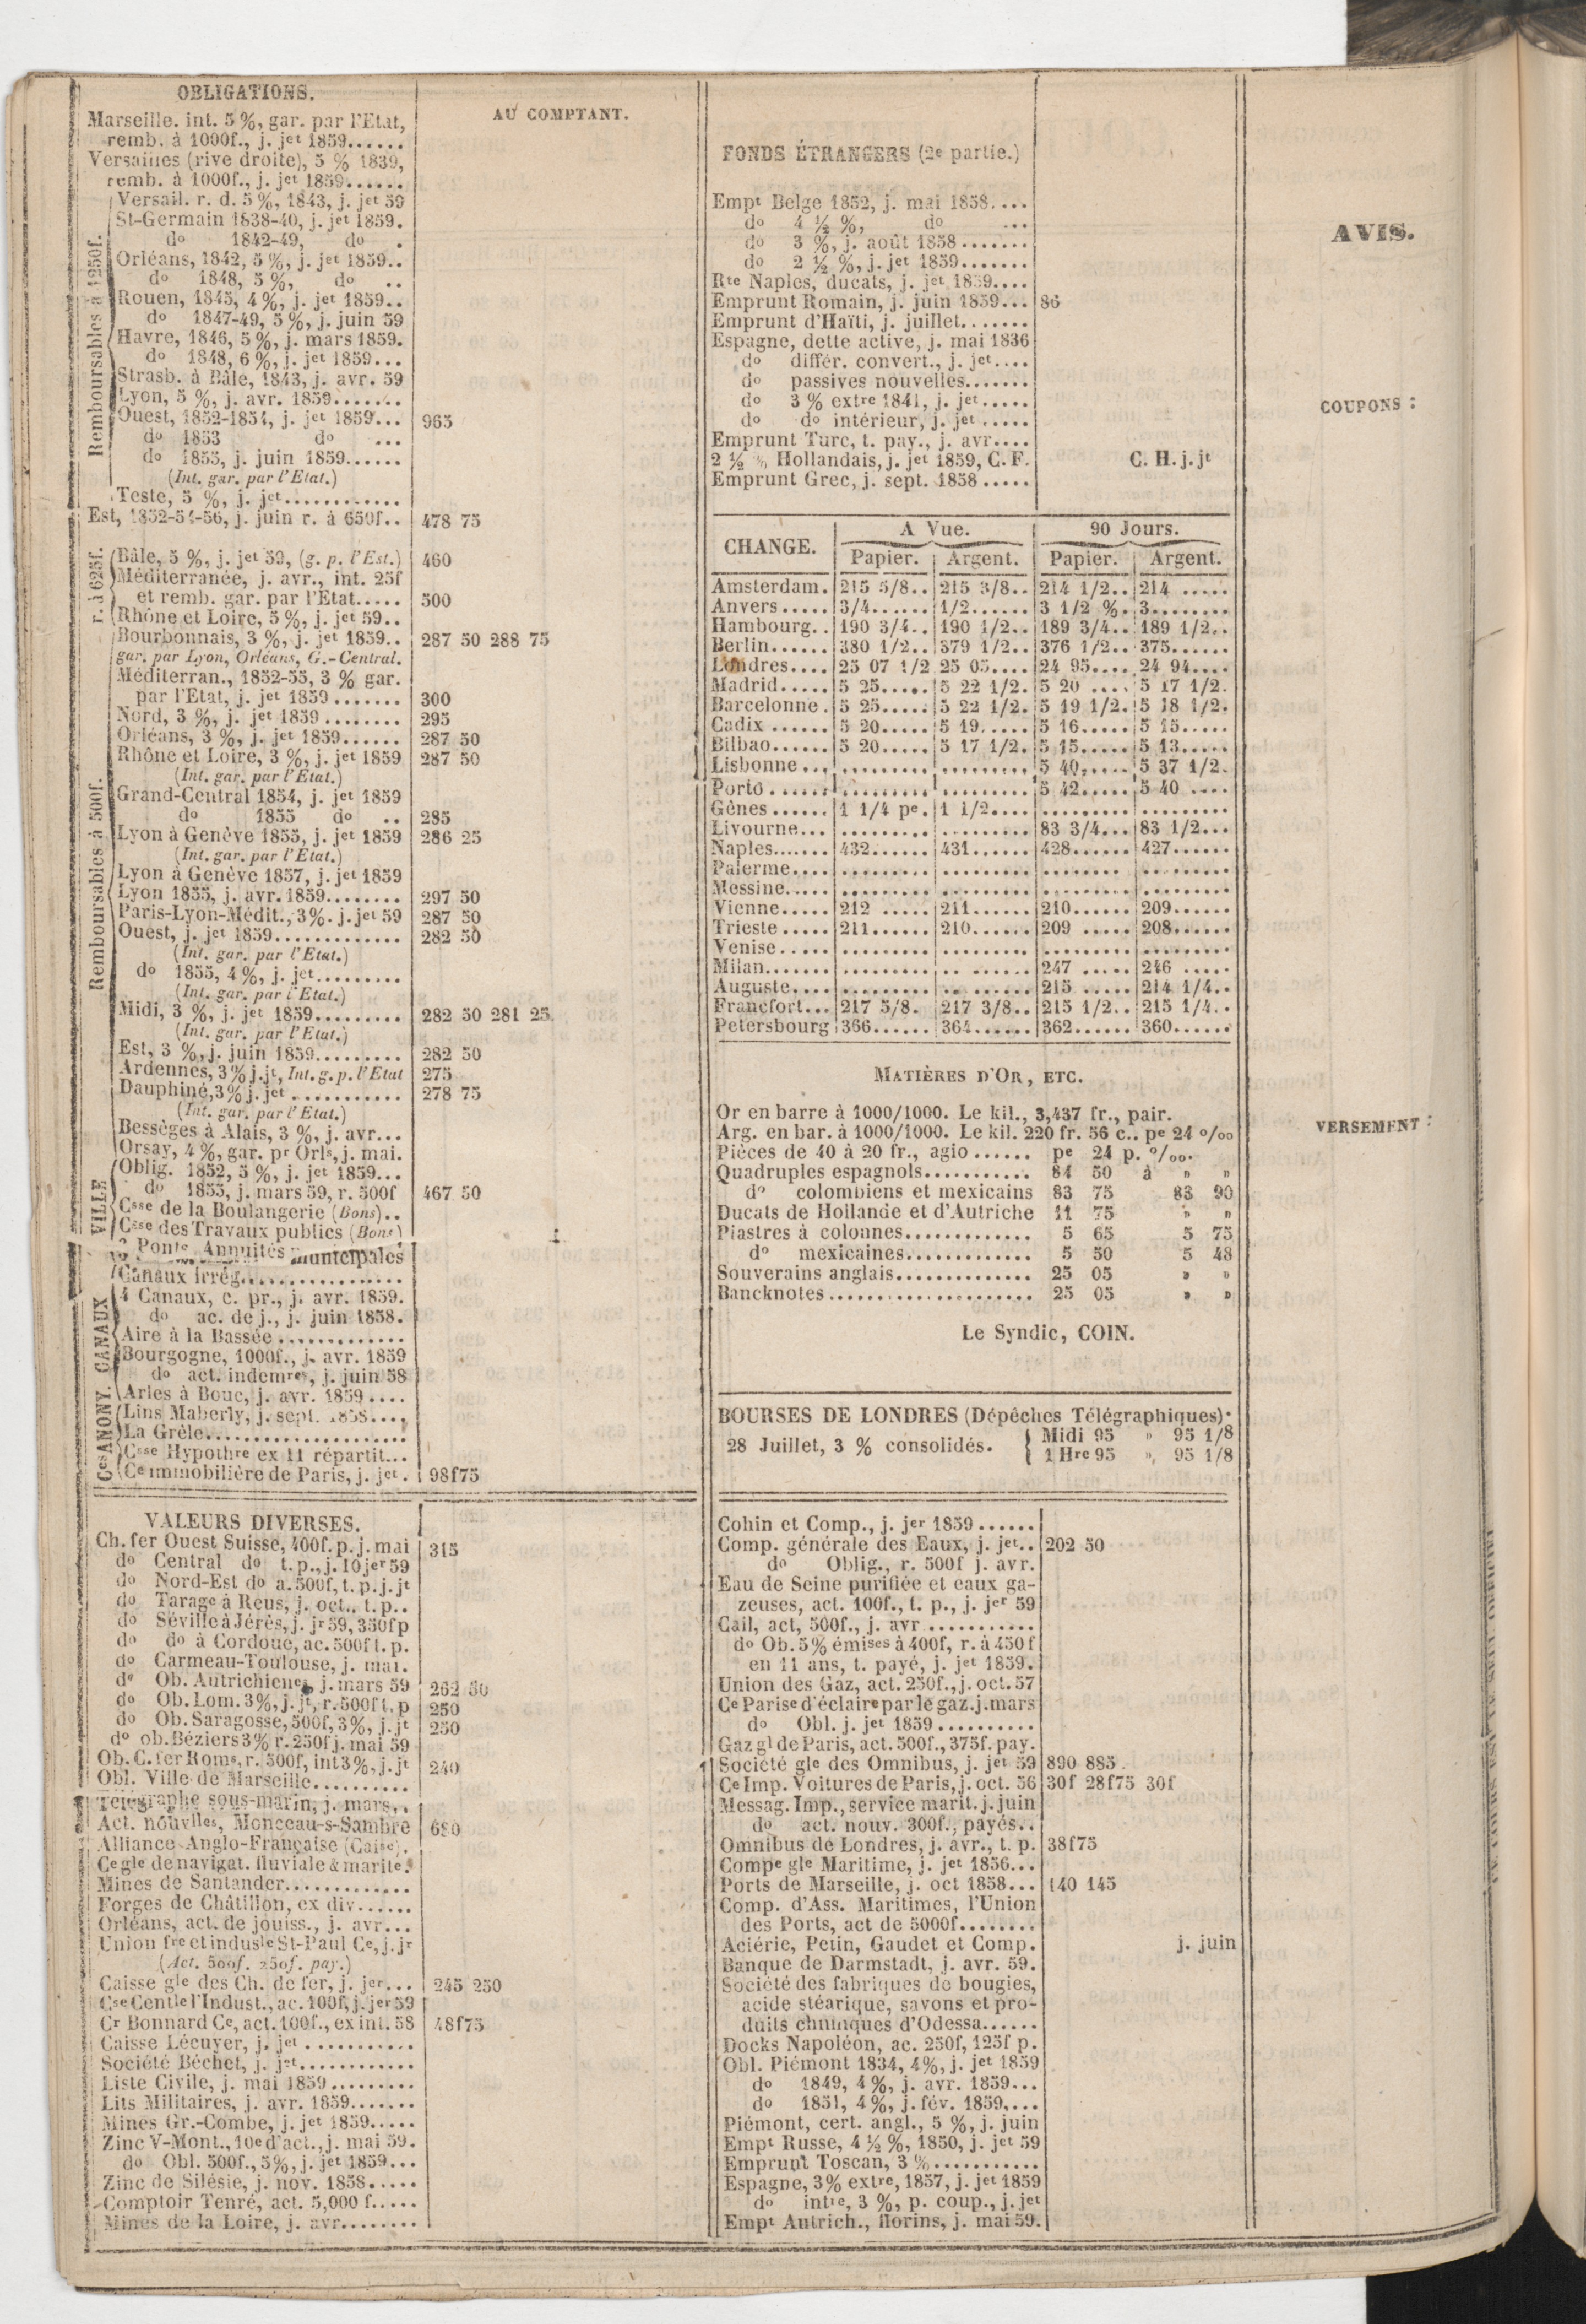 OBLIGATIONS.
AU COMPTANT.
Marseille. int. 5%, gar. par l'Etat,
remb. à 1000f., j. jet 1859......
Versailles (rive droite), 5 % 1839,
remb. à 1000f., j. jet 1859......
Remboursables à 1250f.
Versail. r. d. 5%, 1843, j. jet 59
St-Germain 1838-40, j. jet 1859.
do 1842-49, do .
Orléans, 1842, 5%, j. jet 1859..
do 1848, 5%, do ..
Rouen, 1845, 4%, j. jet 1859..
do 1847-49, 5%, j. juin 59
Havre, 1846, 5%, j. mars 1859.
do 1848, 6%, j. jet 1859...
Strasb. à Bâle, 1843, j. avr. 59
Lyon, 5 %, j. avr. 1859.......
Ouest, 1852-1854, j. jet 1859... 965
do 1853 do ...
do 1855, j. juin 1859......
(Int. gar. par l'Etat.)
Teste, 5 %, j. jet............
Est, 1852-54-56, j. juin r. à 650f.. 478 75
r. à 625f.
Bâle, 5 %, j. jet 59, (g. p. l'Est.) 460
Méditerranée, j. avr., int. 25f
et remb. gar. par l'Etat..... 500
Rhône et Loire, 5%, j. jet 59..
Remboursables à 500f.
Bourbonnais, 3 %, j. jet 1859.. 287 50 288 75
gar. par Lyon, Orléans, G.-Central.
Méditerran., 1852-55, 3 % gar.
par l'Etat, j. jet 1859....... 300
Nord, 3 %, j. jet 1859........ 295
Orléans, 3 %, j. jet 1859...... 287 50
Rhône et Loire, 3 %, j. jet 1859 287 50
(Int. gar. par l'Etat.)
Grand-Central 1854, j. jet 1859
do 1855 do .. 285
Lyon à Genève 1855, j. jet 1859 286 25
(Int. gar. par l'Etat.)
Lyon à Genève 1857, j. jet 1859
Lyon 1855, j. avr. 1859........ 297 50
Paris-Lyon-Médit., 3%. j. jet 59 287 50
Ouest, j. jet 1859............. 282 50
(Int. gar. par l'Etat.)
do 1855, 4%, j. jet.........
(Int. gar. par l'Etat.)
Midi, 3 %, j. jet 1859......... 282 50 281 25
(Int. gar. par l'Etat.)
Est, 3 %, j. juin 1859......... 282 50
Ardennes, 3% j. jt, Int. g. p. l'Etat 275
Dauphiné, 3% j. jet ........... 278 75
(Int. gar. par l'Etat.)
Bessèges à Alais, 3 %, j. avr...
Orsay, 4%, gar. pr Orls, j. mai.
VILLE
Oblig. 1852, 5 %, j. jet 1859...
do 1855, j. mars 59, r. 500f 467 50
Csse de la Boulangerie (Bons)..
Csse des Travaux publics (Bons)
Ponts Annuités municipales
CANAUX
Canaux irrég.................
4 Canaux, c. pr., j. avr. 1859.
do ac. de j., j. juin 1858.
Aire à la Bassée.............
Bourgogne, 1000f., j. avr. 1859
do act. indemres, j. juin 58
Arles à Bouc, j. avr. 1859....
Ces ANONY.
Lins Maberly, j. sept. 1858....
La Grêle.....................
Csse Hypothre ex 11 répartit...
Ce immobilière de Paris, j. jet. 98f75
VALEURS DIVERSES.
Ch. fer Ouest Suisse, 400f. p. j. mai 315
do Central do t. p., j. 10 jer 59
do Nord-Est do a. 500f, t. p. j. jt
do Tarage à Reus, j. oct., t. p..
do Séville à Jérès, j. jr 59, 350f p
do do à Cordoue, ac. 500f t. p.
do Carmeau-Toulouse, j. mai.
do Ob. Autrichienes, j. mars 59 262 50
do Ob. Lom. 3%, j. jt, r. 500f t. p 250
do Ob. Saragosse, 500f, 3%, j. jt 250
do ob. Béziers 3% r. 250f j. mai 59
Ob. C. fer Roms, r. 500f, int 3%, j. jt 240
Obl. Ville de Marseille..........
Télégraphe sous-marin, j. mars..
Act. nouvlles, Monceau-s-Sambre 680
Alliance Anglo-Française (Caisse).
Ce gle de navigat. fluviale & marite.
Mines de Santander.............
Forges de Châtillon, ex div......
Orléans, act. de jouiss., j. avr...
Union fre et indusle St-Paul Ce, j. jr
(Act. 500f. 250f. pay.)
Caisse gle des Ch. de fer, j. jer... 245 250
Cse Centle l'Indust., ac. 100f, j. jer 59
Cr Bonnard Ce, act. 100f., ex int. 58 48f75
Caisse Lécuyer, j. jet ...........
Société Béchet, j. jet............
Liste Civile, j. mai 1859.........
Lits Militaires, j. avr. 1859.......
Mines Gr.-Combe, j. jet 1859.....
Zinc V-Mont., 10e d'act., j. mai 59.
do Obl. 500f., 5%, j. jet 1859...
Zinc de Silésie, j. nov. 1858.....
Comptoir Tenré, act. 5,000 f.....
Mines de la Loire, j. avr........
FONDS ÉTRANGERS (2e partie.)
Empt Belge 1852, j. mai 1858....
do 4 ½ %, do ...
do 3 %, j. août 1858.......
do 2 ½ %, j. jet 1859.......
Rte Naples, ducats, j. jet 1859....
Emprunt Romain, j. juin 1859... 86
Emprunt d'Haïti, j. juillet.......
Espagne, dette active, j. mai 1836
do différ. convert., j. jet....
do passives nouvelles.......
do 3 % extre 1841, j. jet.....
do do intérieur, j. jet.....
Emprunt Turc, t. pay., j. avr....
2 ½ % Hollandais, j. jet 1859, C. F. C. H. j. jt
Emprunt Grec, j. sept. 1858.....
CHANGE. A Vue. 90 Jours.
Papier. Argent. Papier. Argent.
Amsterdam. 215 5/8.. 215 3/8.. 214 1/2.. 214 .....
Anvers..... 3/4...... 1/2...... 3 1/2 %. 3........
Hambourg.. 190 3/4.. 190 1/2.. 189 3/4.. 189 1/2..
Berlin...... 380 1/2.. 379 1/2.. 376 1/2.. 375......
Londres.... 25 07 1/2 25 05.... 24 95.... 24 94....
Madrid..... 5 25..... 5 22 1/2. 5 20 .... 5 17 1/2.
Barcelonne. 5 25..... 5 22 1/2. 5 19 1/2. 5 18 1/2.
Cadix ...... 5 20..... 5 19..... 5 16..... 5 15.....
Bilbao...... 5 20..... 5 17 1/2. 5 15..... 5 13.....
Lisbonne... ......... ......... 5 40..... 5 37 1/2.
Porto...... ......... ......... 5 42..... 5 40 ....
Gênes...... 1 1/4 pe. 1 1/2.... ......... .........
Livourne... ......... ......... 83 3/4... 83 1/2...
Naples....... 432...... 431...... 428...... 427......
Palerme.... ......... ......... ......... .........
Messine..... ......... ......... ......... .........
Vienne..... 212 ..... 211...... 210...... 209......
Trieste..... 211...... 210...... 209 ..... 208......
Venise..... ......... ......... ......... .........
Milan....... ......... ......... 247 ..... 246 .....
Auguste.... ......... ......... 215 ..... 214 1/4..
Francfort... 217 5/8. 217 3/8.. 215 1/2.. 215 1/4..
Petersbourg 366...... 364...... 362...... 360......
MATIÈRES D'OR, ETC.
Or en barre à 1000/1000. Le kil., 3,437 fr., pair.
Arg. en bar. à 1000/1000. Le kil. 220 fr. 56 c.. pe 24 º/oo
Pièces de 40 à 20 fr., agio...... pe 24 p. º/oo.
Quadruples espagnols........... 84 50 à » »
do colombiens et mexicains 83 75 83 90
Ducats de Hollande et d'Autriche 11 75 » »
Piastres à colonnes............. 5 65 5 75
do mexicaines............. 5 50 5 48
Souverains anglais.............. 25 05 » »
Bancknotes..................... 25 05 » »
Le Syndic, COIN.
BOURSES DE LONDRES (Dépêches Télégraphiques).
28 Juillet, 3 % consolidés. Midi 95 » 95 1/8
1 Hre 95 », 95 1/8
Cohin et Comp., j. jer 1859......
Comp. générale des Eaux, j. jet.. 202 50
do Oblig., r. 500f j. avr.
Eau de Seine purifiée et eaux ga-
zeuses, act. 100f., t. p., j. jer 59
Cail, act, 500f., j. avr...........
do Ob. 5% émises à 400f, r. à 450f
en 11 ans, t. payé, j. jet 1859.
Union des Gaz, act. 250f., j. oct. 57
Ce Parise d'éclaire par le gaz. j. mars
do Obl. j. jet 1859..........
Gaz gl de Paris, act. 500f., 375f. pay.
Société gle des Omnibus, j. jet 59 890 885
Ce Imp. Voitures de Paris, j. oct. 56 30f 28f75 30f
Messag. Imp., service marit. j. juin
do act. nouv. 300f., payés..
Omnibus de Londres, j. avr., t. p. 38f75
Compe gle Maritime, j. jet 1856...
Ports de Marseille, j. oct 1858... 140 145
Comp. d'Ass. Maritimes, l'Union
des Ports, act de 5000f........
Aciérie, Petin, Gaudet et Comp. j. juin
Banque de Darmstadt, j. avr. 59.
Société des fabriques de bougies,
acide stéarique, savons et pro-
duits chimiques d'Odessa......
Docks Napoléon, ac. 250f, 125f p.
Obl. Piémont 1834, 4%, j. jet 1859
do 1849, 4%, j. avr. 1859...
do 1851, 4%, j. fév. 1859....
Piémont, cert. angl., 5 %, j. juin
Empt Russe, 4 ½ %, 1850, j. jet 59
Emprunt Toscan, 3 %...........
Espagne, 3% extre, 1857, j. jet 1859
do intre, 3 %, p. coup., j. jet
Empt Autrich., florins, j. mai 59.
AVIS.
COUPONS :
VERSEMENT :